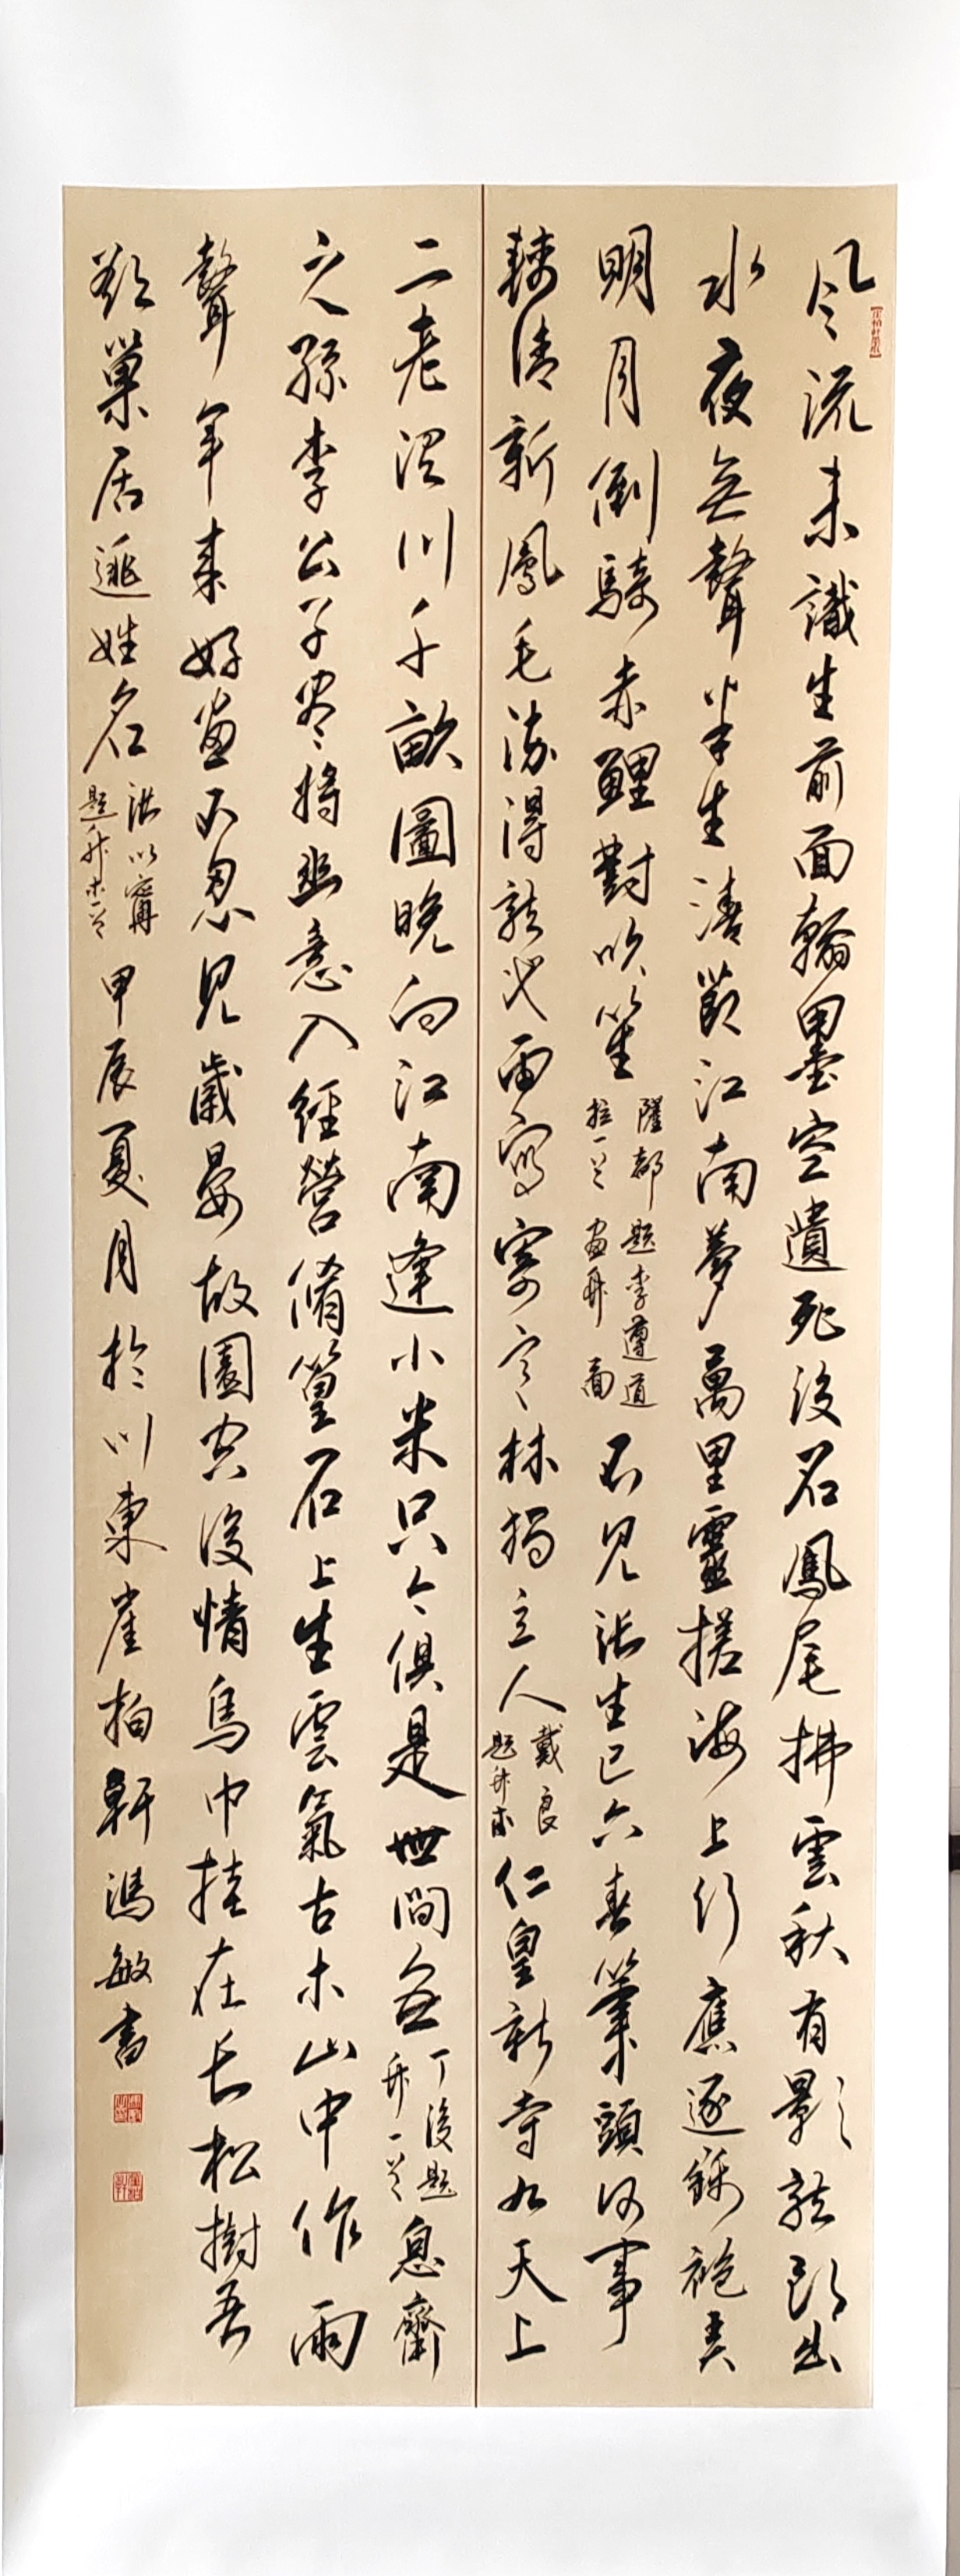 风流未識生前面翰墨空遺死後名鳳尾拂雲秋有影龍頭出
水夜無聲半生清節江南夢萬里靈搓海上行應逐錦袍天
明月倒騎赤鯉對吹笙
薩都
拉一首
題李遵道
畫竹
不見張生已六春筆頭何事
轉清新鳳毛添得龍
雨寫寒林獨立人
戴良
題竹木
仁皇新寺如天上
二老淇川千畝圖晚向江南逢小米只今俱是世間無
丁復題
竹一首
息齋
之孫李公子卷將幽意入經營脩篁石上生雲氣古木山中作雨
聲年來好畫不忍見歲晏故園空復情烏巾挂在長松樹吾
欲巢居逃姓名
張以寧
題竹木一首
甲辰夏月於川東崖柏軒馮敏書